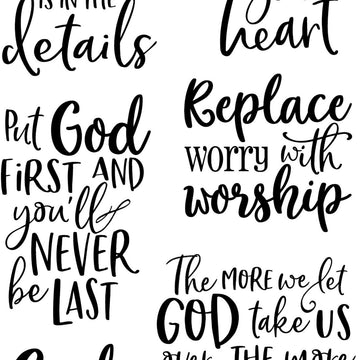 IS IN THE
details
heart
Put God
FIRST AND
you'll
NEVER
be LAST
Replace
worry with
worship
The MORE we let
GOD take US
over, THE more